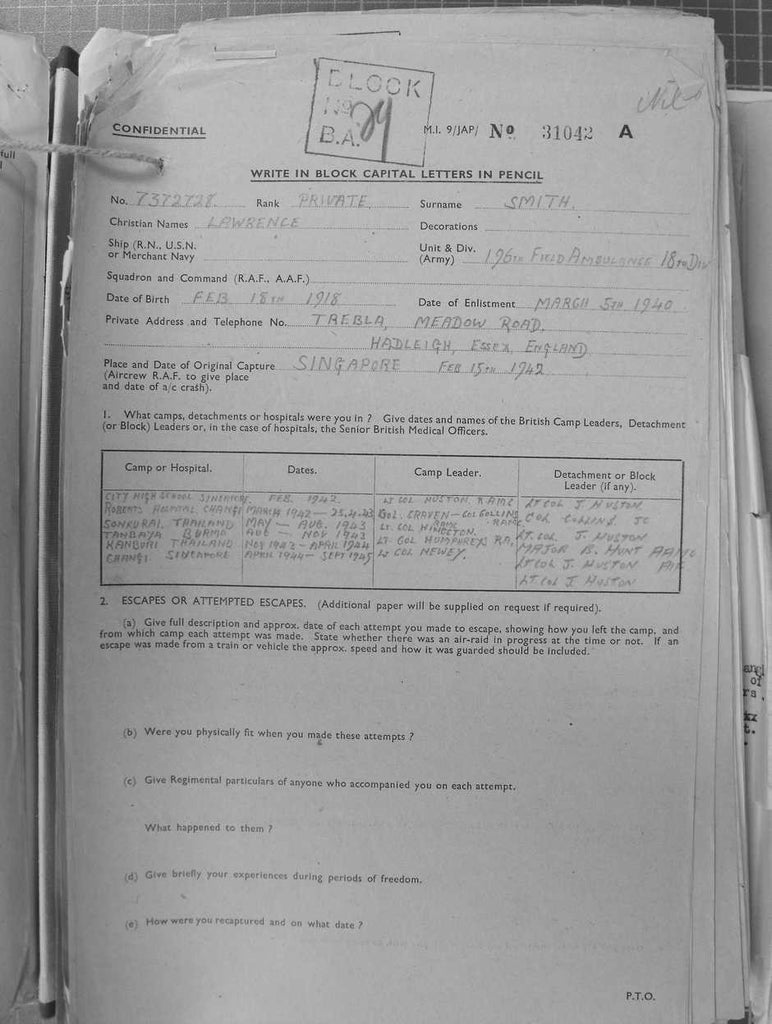 BLOCK
No 24
B.A.
Nil
CONFIDENTIAL
M.I. 9/JAP/ No 31042 A
WRITE IN BLOCK CAPITAL LETTERS IN PENCIL
No. 7372728. Rank PRIVATE. Surname SMITH.
Christian Names LAWRENCE Decorations
Ship (R.N., U.S.N. or Merchant Navy
Unit & Div. (Army) 196TH FIELD AMBULANCE 18TH DIV
Squadron and Command (R.A.F., A.A.F.)
Date of Birth FEB 18TH 1918 Date of Enlistment MARCH 5TH 1940
Private Address and Telephone No. TREBLA, MEADOW ROAD,
HADLEIGH, ESSEX, ENGLAND
Place and Date of Original Capture SINGAPORE FEB 15TH 1942
(Aircrew R.A.F. to give place
and date of a/c crash).
1. What camps, detachments or hospitals were you in ? Give dates and names of the British Camp Leaders, Detachment
(or Block) Leaders or, in the case of hospitals, the Senior British Medical Officers.
Camp or Hospital. Dates. Camp Leader. Detachment or Block
Leader (if any).
CITY HIGH SCHOOL SINGAPORE. FEB. 1942. LT COL HUSTON RAMC LT COL J HUSTON
ROBERTS HOSPITAL CHANGI MARCH 1942 — 25.4.43 COL. CRAVEN — COL COLLINS RAMC COL COLLINS
SONKURAI THAILAND MAY — AUG. 1943 LT. COL LT. COL. J. HUSTON
TANBAYA BURMA AUG — NOV 1943 LT. COL HUMPHREYS RA. MAJOR B. HUNT
KANBURI THAILAND NOV 1943 — APRIL 1944 LT COL NEWEY. LT COL J. HUSTON
CHANGI SINGAPORE APRIL 1944 — SEPT 1945 LT COL J HUSTON
2. ESCAPES OR ATTEMPTED ESCAPES. (Additional paper will be supplied on request if required).
(a) Give full description and approx. date of each attempt you made to escape, showing how you left the camp, and
from which camp each attempt was made. State whether there was an air-raid in progress at the time or not. If an
escape was made from a train or vehicle the approx. speed and how it was guarded should be included.
(b) Were you physically fit when you made these attempts ?
(c) Give Regimental particulars of anyone who accompanied you on each attempt.
What happened to them ?
(d) Give briefly your experiences during periods of freedom.
(e) How were you recaptured and on what date ?
P.T.O.